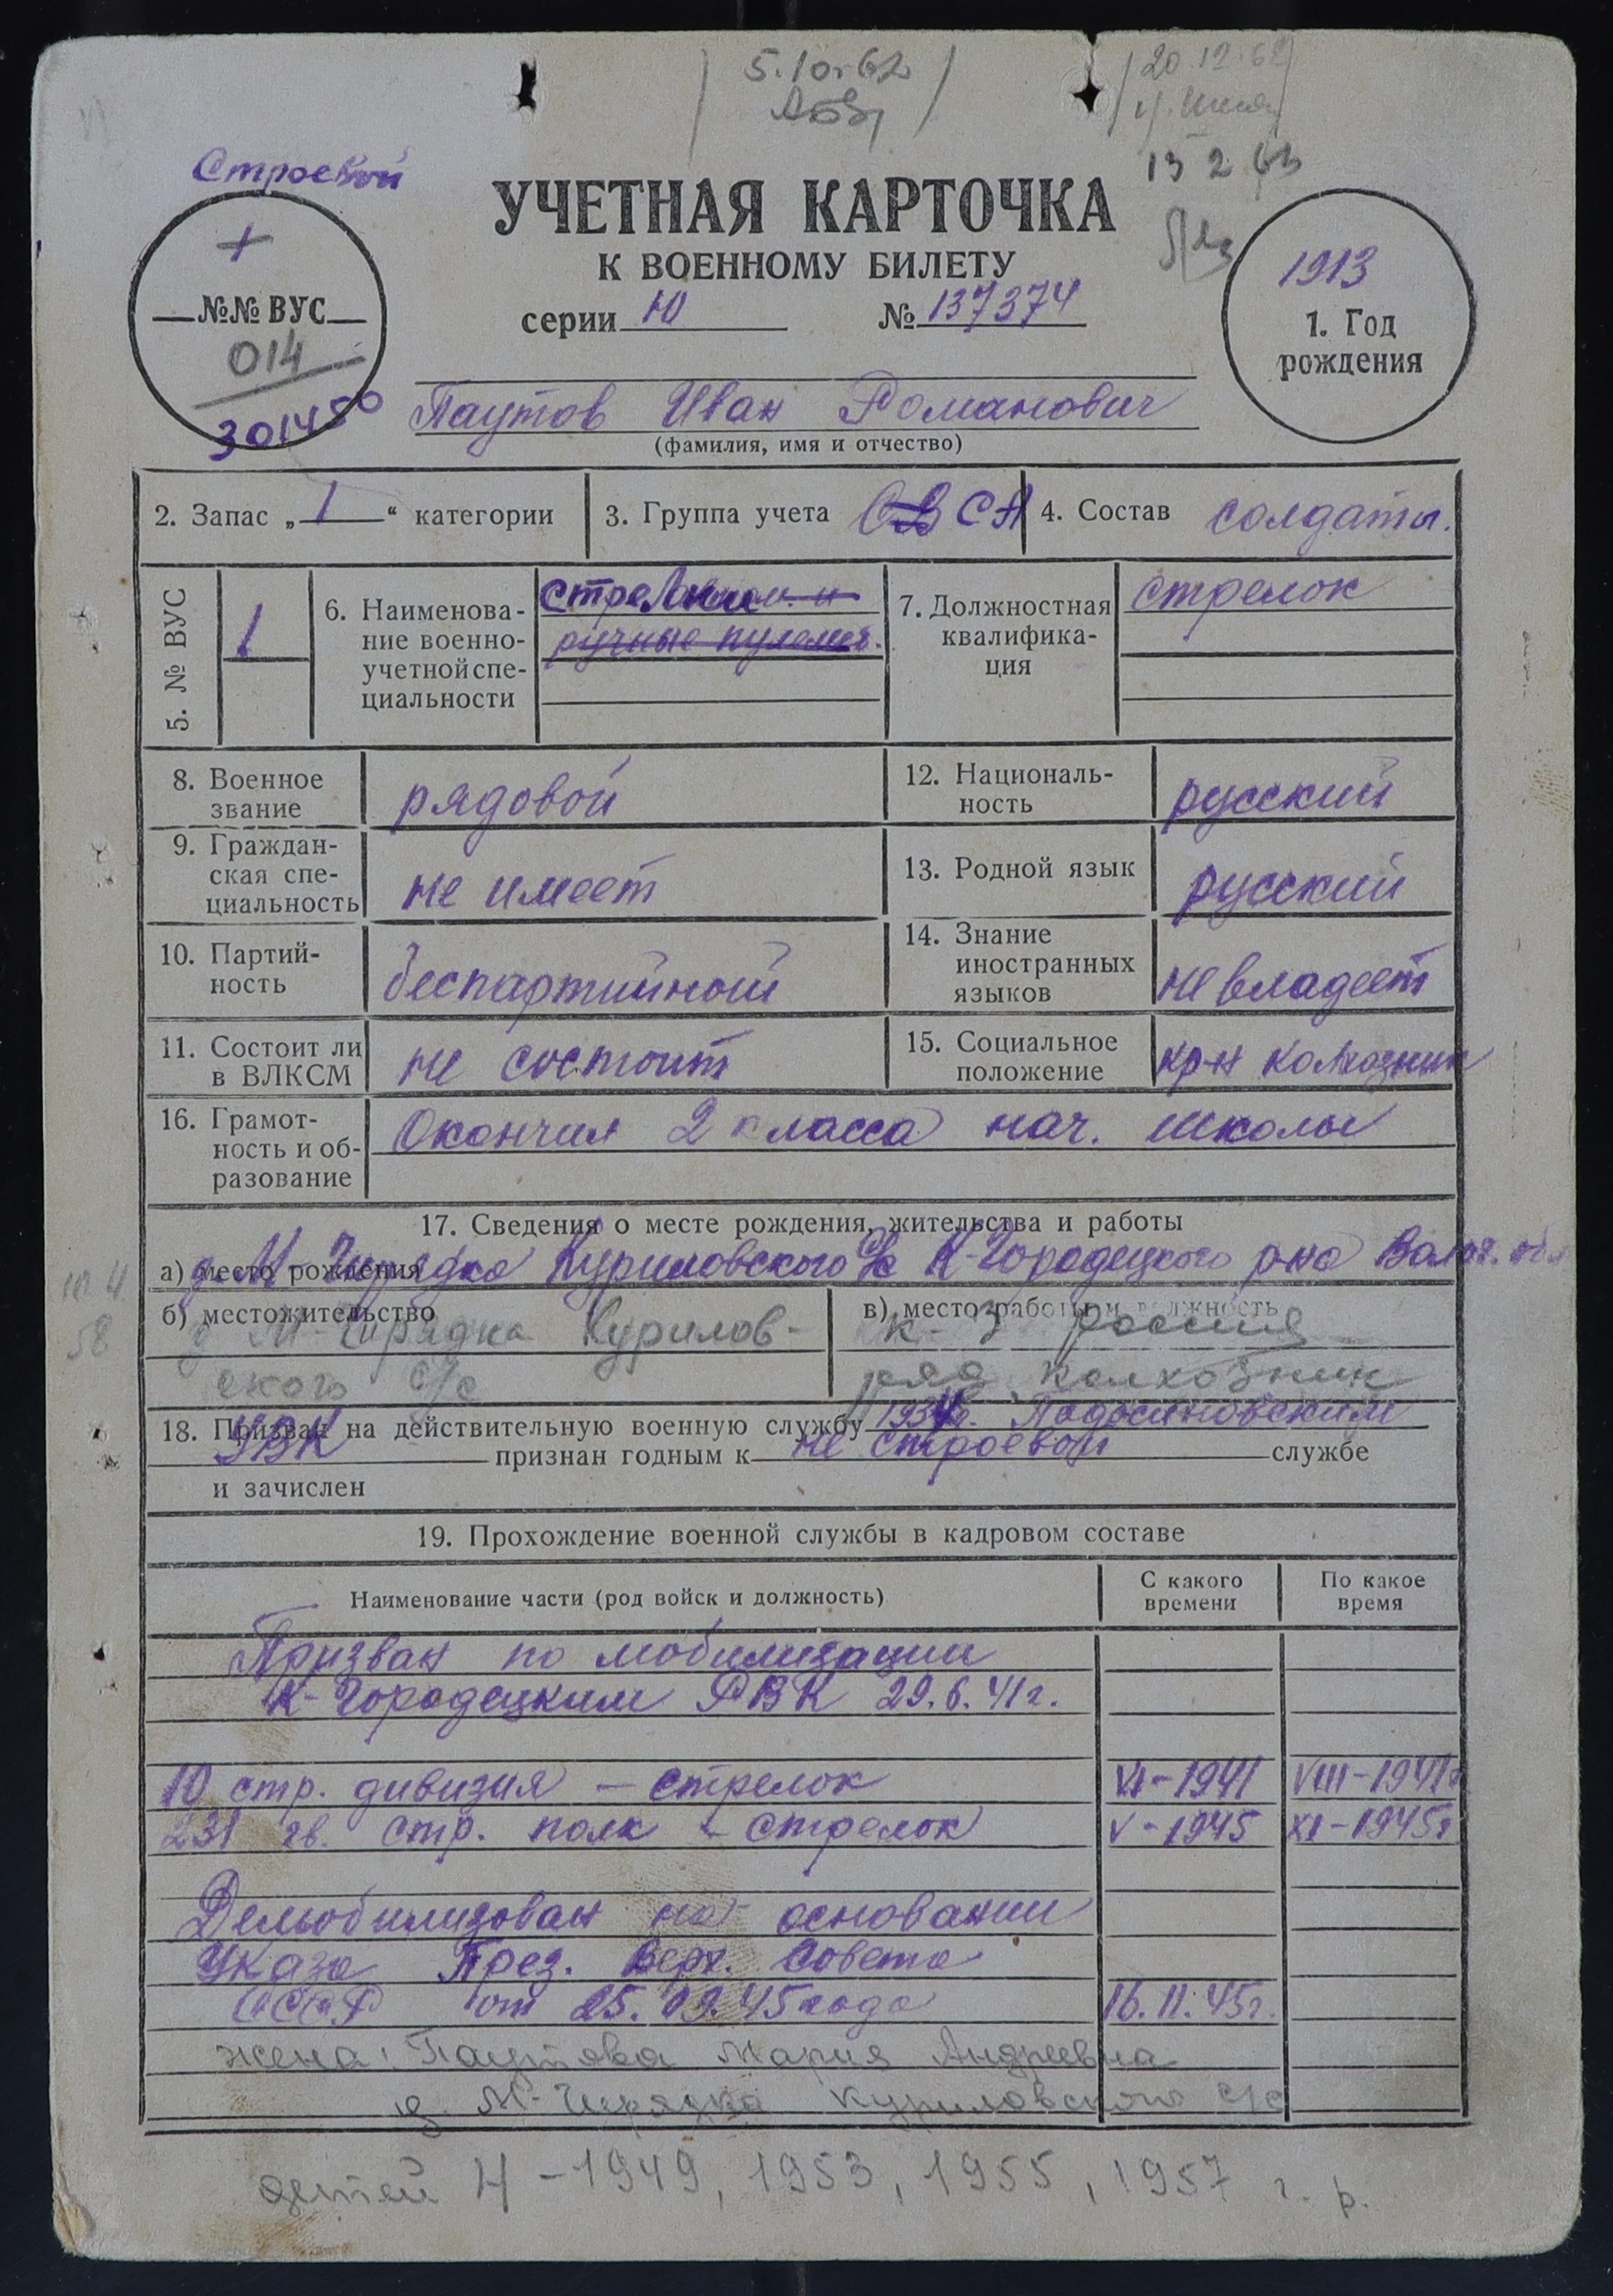 5.10.62
20.12.62
13 2 63
Строевой
УЧЕТНАЯ КАРТОЧКА
К ВОЕННОМУ БИЛЕТУ
серии Ю № 137374
№№ ВУС
014
301450
1913
1. Год
рождения
Паутов Иван Романович
(фамилия, имя и отчество)
2. Запас „ 1 “ категории
3. Группа учета СА
4. Состав солдаты.
5. № ВУС
1
6. Наименова-
ние военно-
учетной спе-
циальности
стрелки
ручные пулемет.
7. Должностная
квалифика-
ция
стрелок
8. Военное
звание
рядовой
12. Националь-
ность
русский
9. Граждан-
ская спе-
циальность
не имеет
13. Родной язык
русский
10. Партий-
ность
беспартийный
14. Знание
иностранных
языков
не владеет
11. Состоит ли
в ВЛКСМ
не состоит
15. Социальное
положение
кр-н колхозник
16. Грамот-
ность и об-
разование
Окончил 2 класса нач. школы
17. Сведения о месте рождения, жительства и работы
а) место рождения д. М-Чирядка Куриловского с/с К-Городецкого р-на Волог. обл
б) местожительство
д М-Чирядка Курилов-
ского с/с
в) место работы и должность
к-з Россия
ряд. колхозник
18. Призван на действительную военную службу Подосиновским
РВК признан годным к не строевой службе
и зачислен
19. Прохождение военной службы в кадровом составе
Наименование части (род войск и должность)
С какого
времени
По какое
время
Призван по мобилизации
К-Городецким РВК 29.6.41г.
10 стр. дивизия — стрелок VI-1941 VIII-1941г
231 гв. стр. полк - стрелок V-1945 XI-1945г
Демобилизован на основании
Указа През. Верх. Совета
СССР от 25.09.45 года 16.11.45г.
жена: Паутова Мария Андреевна
д. М-Чирядка Куриловского с/с
детей 4 - 1949, 1953, 1955, 1957 г. р.